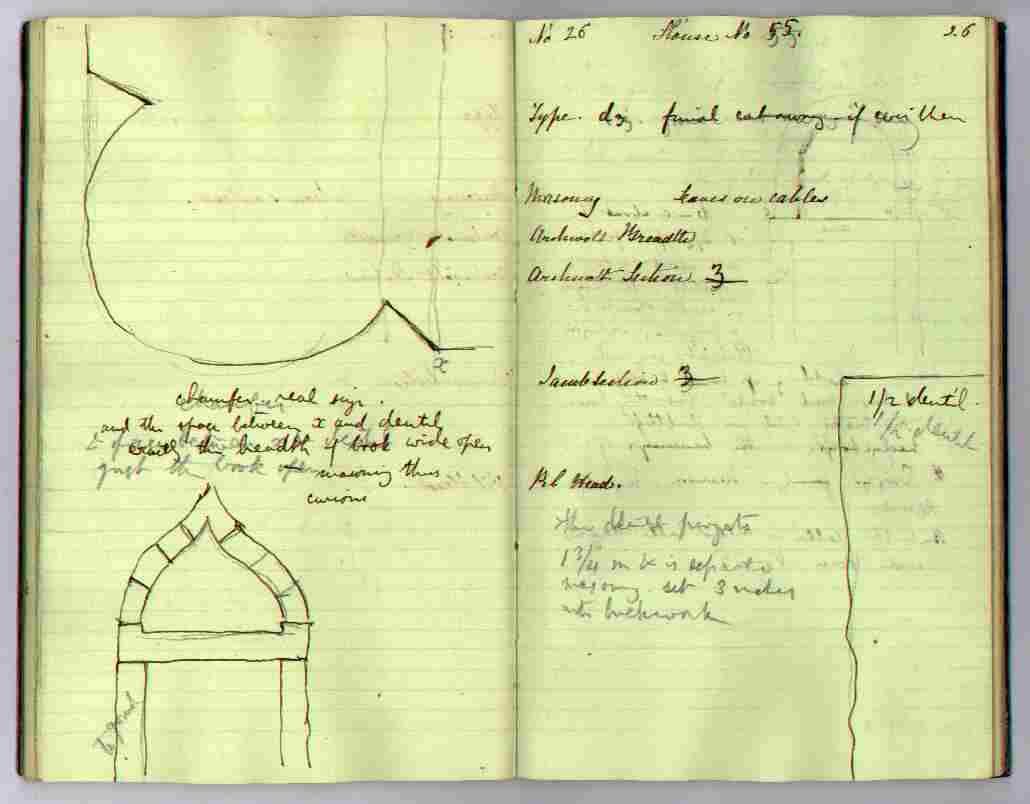 x
chamfer real size.
and the space between x and dentil
exactly the breadth of book wide open
masonry thus
curious
No 26 House No 55. 26
Type. finial cut away if ever then
Masonry
Archivolt Breadth
Archivolt Section 3
Jamb Section 3
1/2 dentil.
1/2 dentil
Pl Head.
the dentil projects
1 3/4 in & is separate
masonry set 3 inches
into brickwork